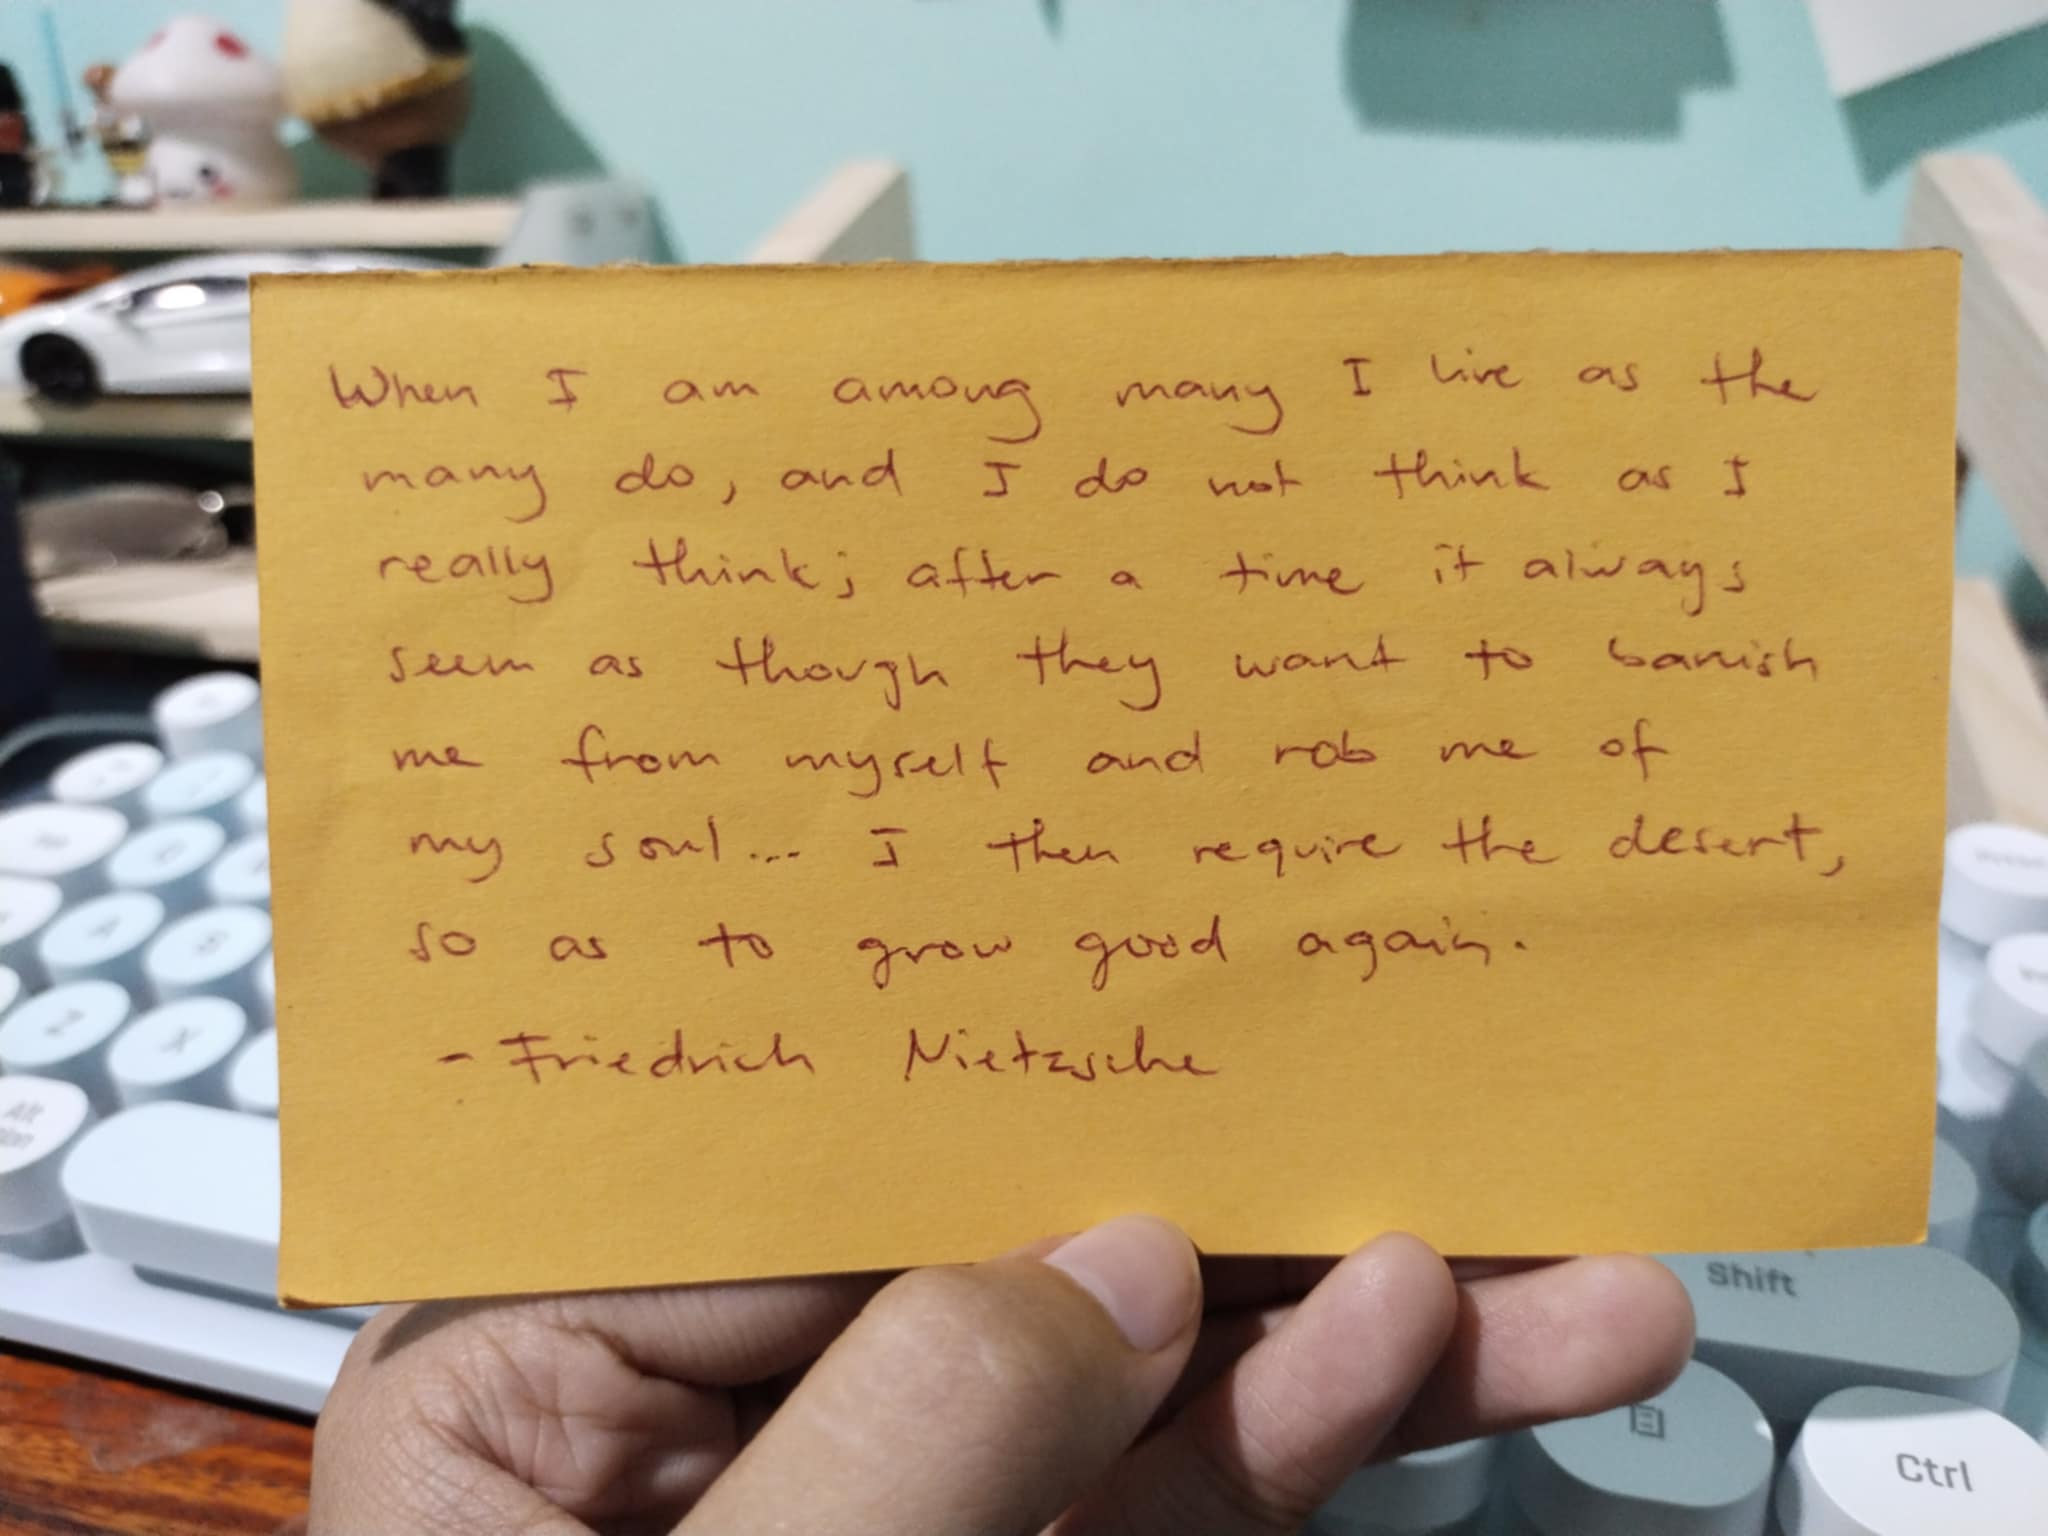 When I am among many I live as the
many do, and I do not think as I
really think; after a time it always
seem as though they want to banish
me from myself and rob me of
my soul... I then require the desert,
so as to grow good again.
- Friedrich Nietzsche
Alt
Shift
Ctrl